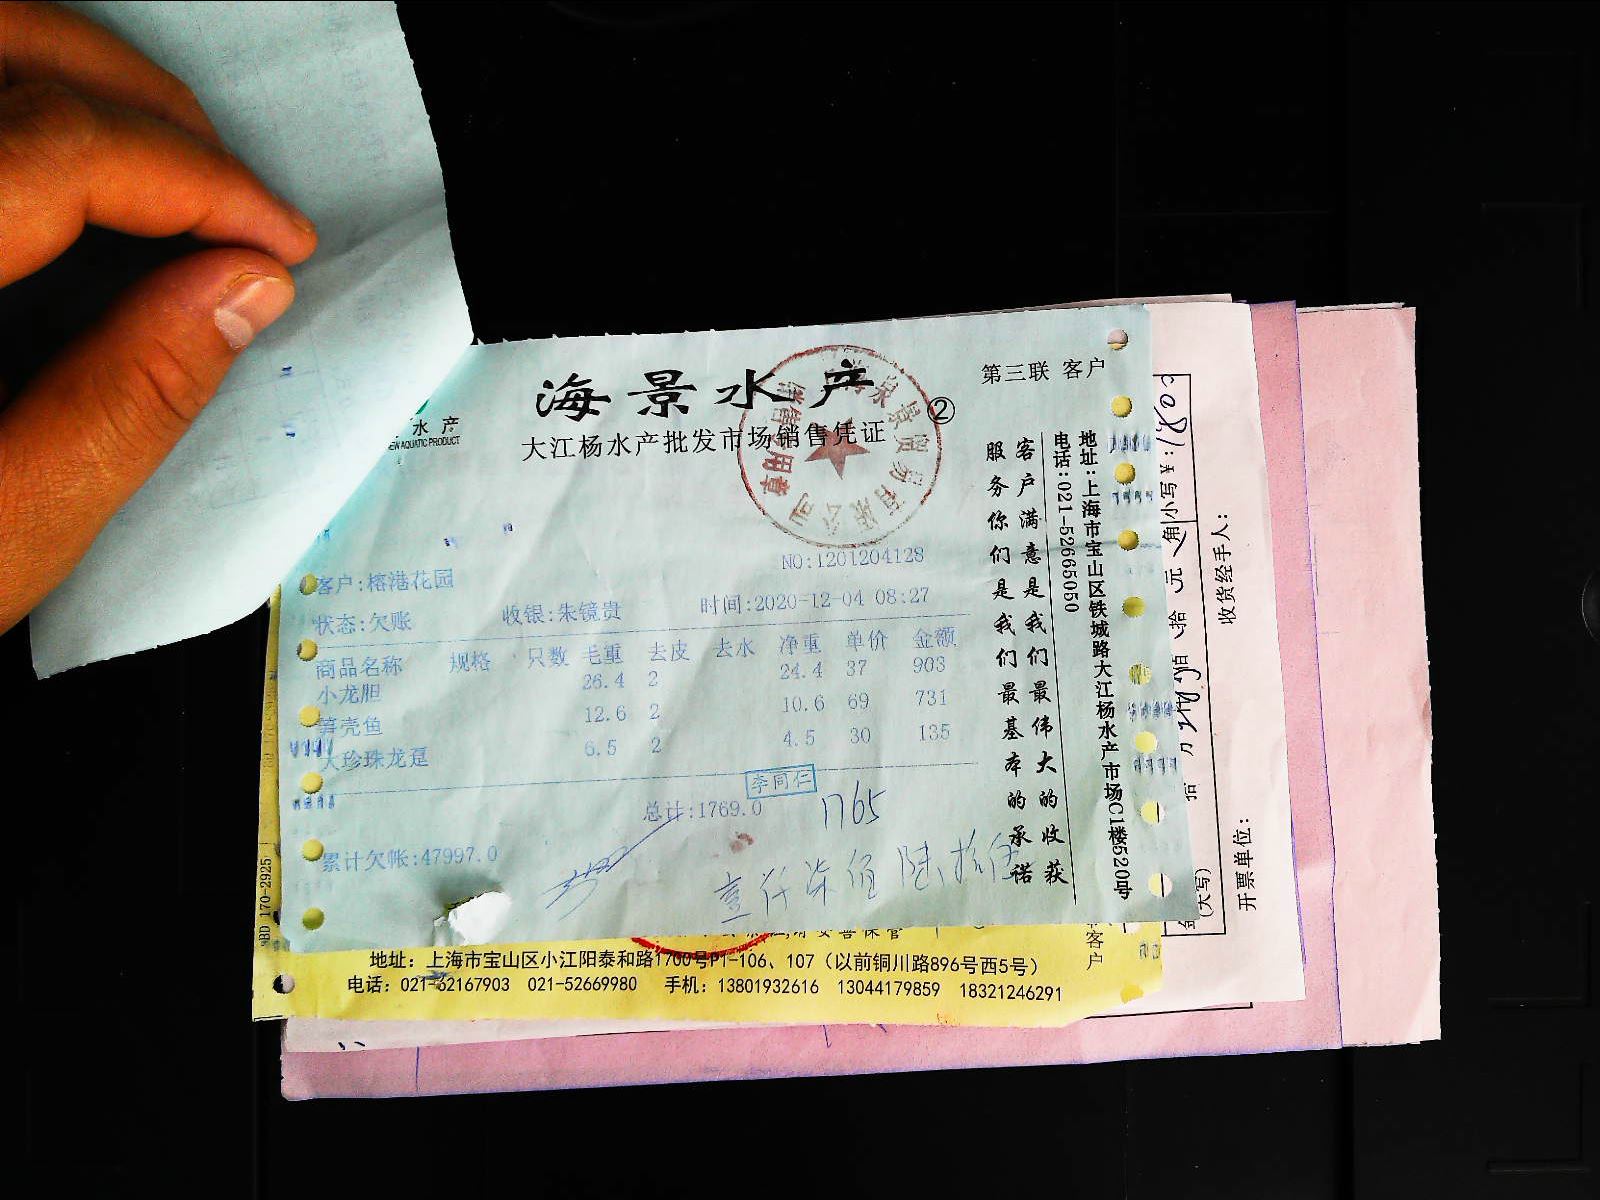 海景水产
②
第三联 客户
水产
NEW AQUATIC PRODUCT
大江杨水产批发市场销售凭证
NO:1201204128
客户:榕港花园
状态:欠账 收银:朱镜贵 时间:2020-12-04 08:27
商品名称 规格 只数 毛重 去皮 去水 净重 单价 金额
小龙胆 26.4 2 24.4 37 903
笋壳鱼 12.6 2 10.6 69 731
大珍珠龙趸 6.5 2 4.5 30 135
李同仁
总计:1769.0 1765
累计欠帐:47997.0
壹仟柒佰陆拾伍
客户满意是我们最伟大的收获
服务你们是我们最基本的承诺
地址:上海市宝山区铁城路大江杨水产市场C1楼520号
电话:021-52665050
地址：上海市宝山区小江阳泰和路1700号P1-106、107（以前铜川路896号西5号）
电话：021-62167903 021-52669980 手机：13801932616 13044179859 18321246291
客户
170-2925
小写¥:
角
元
拾
佰
(大写)
收货经手人：
开票单位：